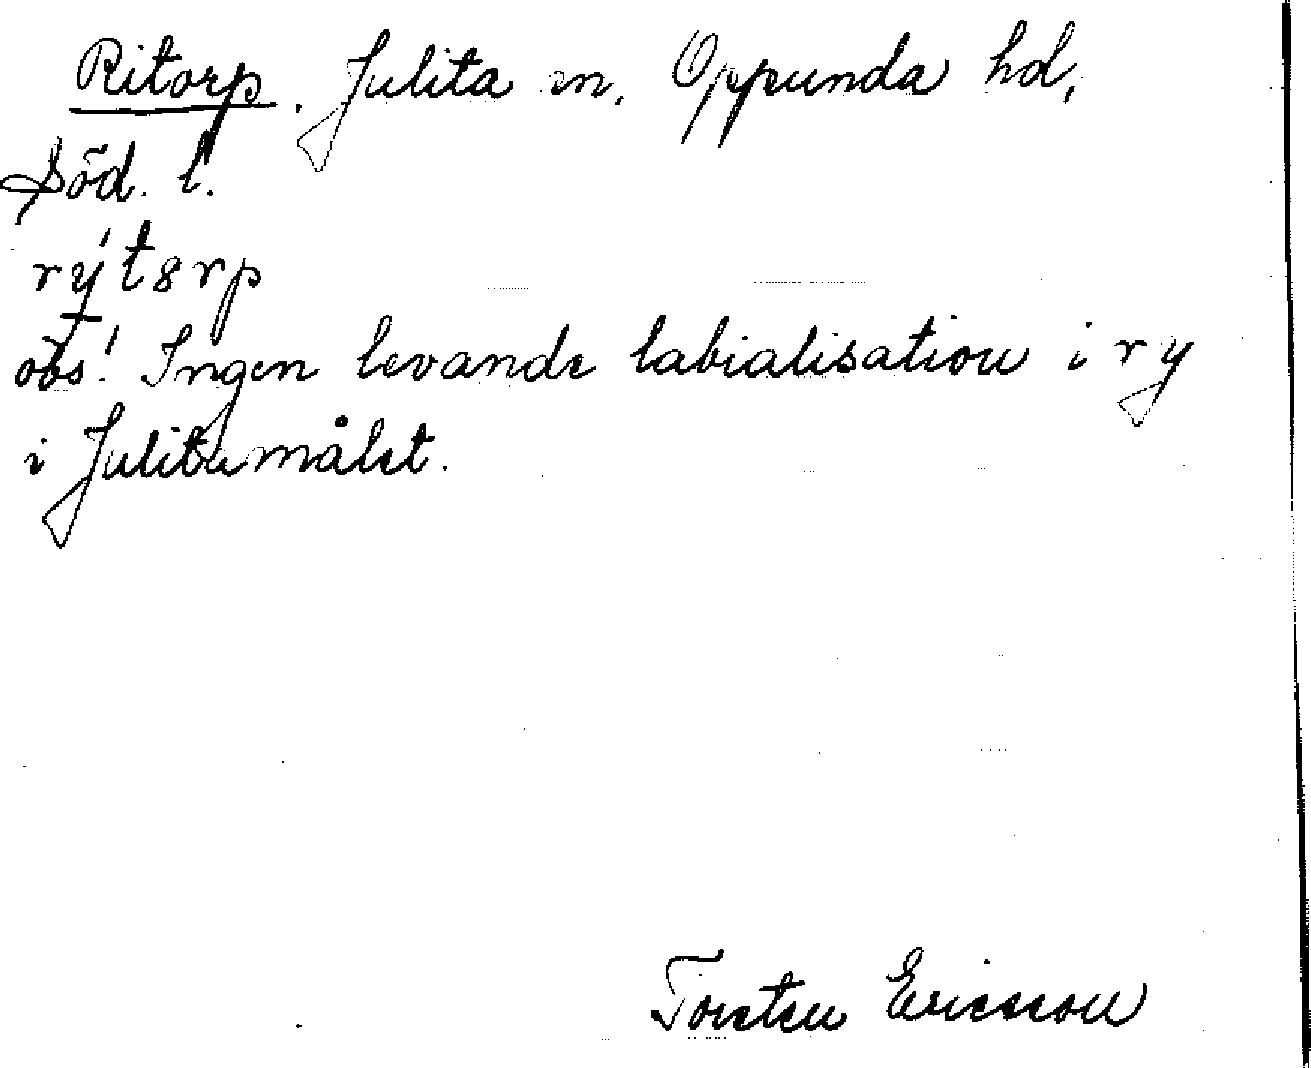 Ritorp. Julita sn, Oppunda hd,
Söd. l.
rýt8rp
obs! Ingen levande labialisation i ry
i Julitamålet.
Torsten Ericsson